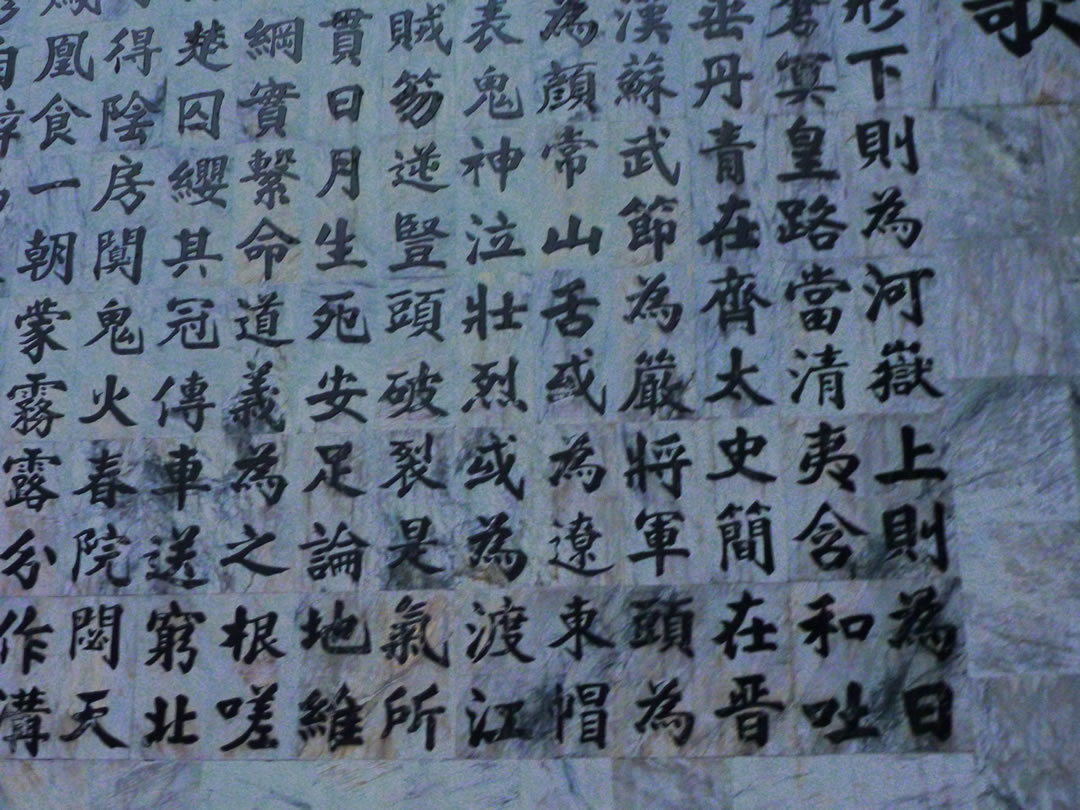 歌
形下則為河嶽上則為日
蒼冥皇路當清夷含和吐
垂丹青在齊太史簡在晋
漢蘇武節為嚴將軍頭為
為顏常山舌或為遼東帽
表鬼神泣壯烈或為渡江
賊笏逆豎頭破裂是氣所
貫日月生死安足論地維
綱實繫命道義為之根嗟
楚囚纓其冠傳車送窮北
得陰房闃鬼火春院閟天
凰食一朝蒙霧露分作溝